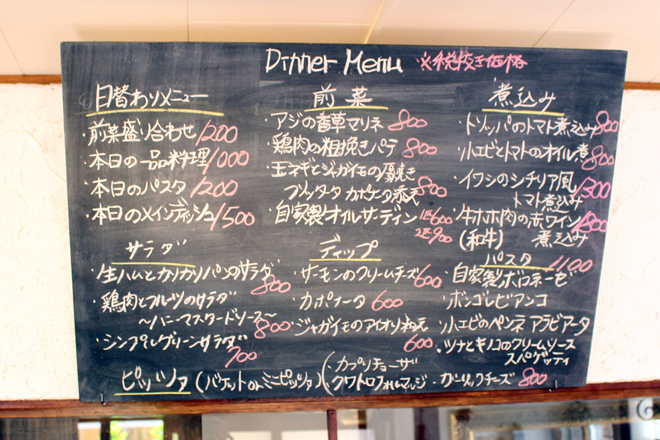 Dinner Menu ※税抜き価格
日替わりメニュー
・前菜盛り合わせ 1200
・本日の一品料理 1000
・本日のパスタ 1200
・本日のメインディッシュ 1500
前菜
・アジの香草マリネ 800
・鶏肉の粗挽きパテ 800
・玉ネギとジャガイモの厚焼き
フリッタタ カポナータ添え 800
・自家製オイルサーディン 1匹600
2匹900
煮込み
・トリッパのトマト煮込み 800
・小エビとトマトのオイル煮 800
・イワシのシチリア風 1300
トマト煮込み
・牛ホホ肉の赤ワイン 1800
(和牛) 煮込み
サラダ
・生ハムとカリカリパンのサラダ
800
・鶏肉とフルーツのサラダ
〜ハニーマスタードソース〜 800
・シンプルグリーンサラダ
700
ディップ
・サーモンのクリームチーズ 600
・カポナータ 600
・ジャガイモのアイオリ和え
600
パスタ 1100
・自家製ボロネーゼ
・ボンゴレビアンコ
・小エビのペンネ アラビアータ
・ツナとキノコのクリームソース
スパゲッティ
ピッツァ (バゲット or ミニピッツァ)
・カプリチョーザ
・クワトロフォルマッジ ・ガーリックチーズ 800